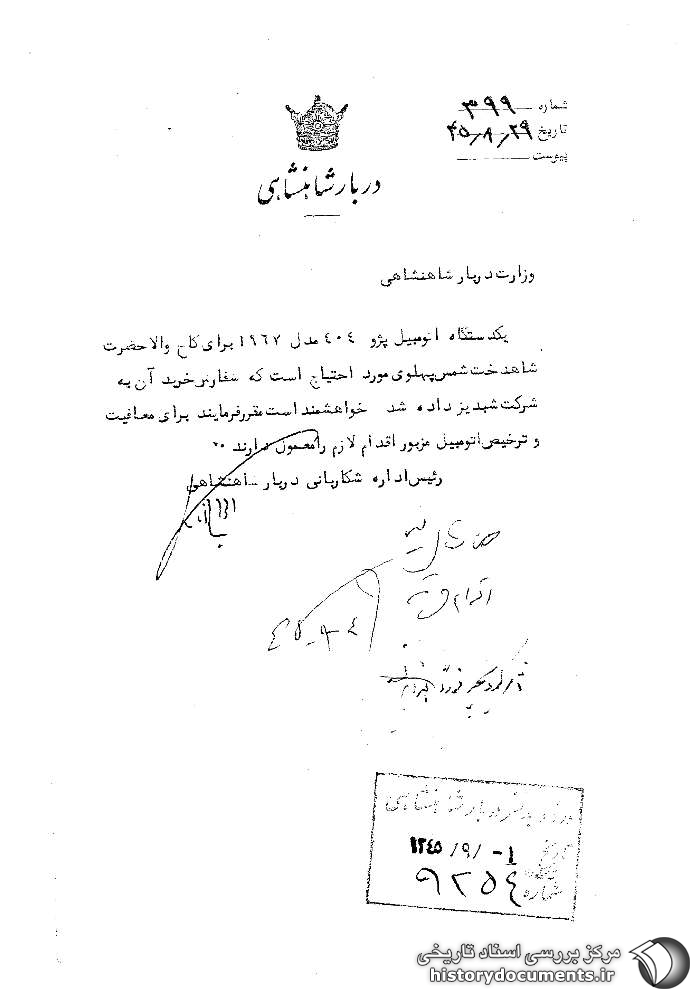 شماره ۳۹۹
تاریخ ۴۵/۸/۲۹
پیوست
دربار شاهنشاهی
وزارت دربار شاهنشاهی
یکدستگاه اتومبیل پژو ۴۰۴ مدل ۱۹۶۷ برای کاخ والاحضرت
شاهدخت شمس پهلوی مورد احتیاج است که سفارش خرید آن به
شرکت شبدیز داده شد خواهشمند است مقرر فرمایند برای معافیت
و ترخیص اتومبیل مزبور اقدام لازم را معمول دارند ۰۰
رئیس اداره شکاربانی دربار شاهنشاهی
اقدام
وزارت دربار شاهنشاهی
تاریخ ۱۳۴۵/۹/-۱
شماره ۹۲۵۴
مرکز بررسی اسناد تاریخی
historydocuments.ir